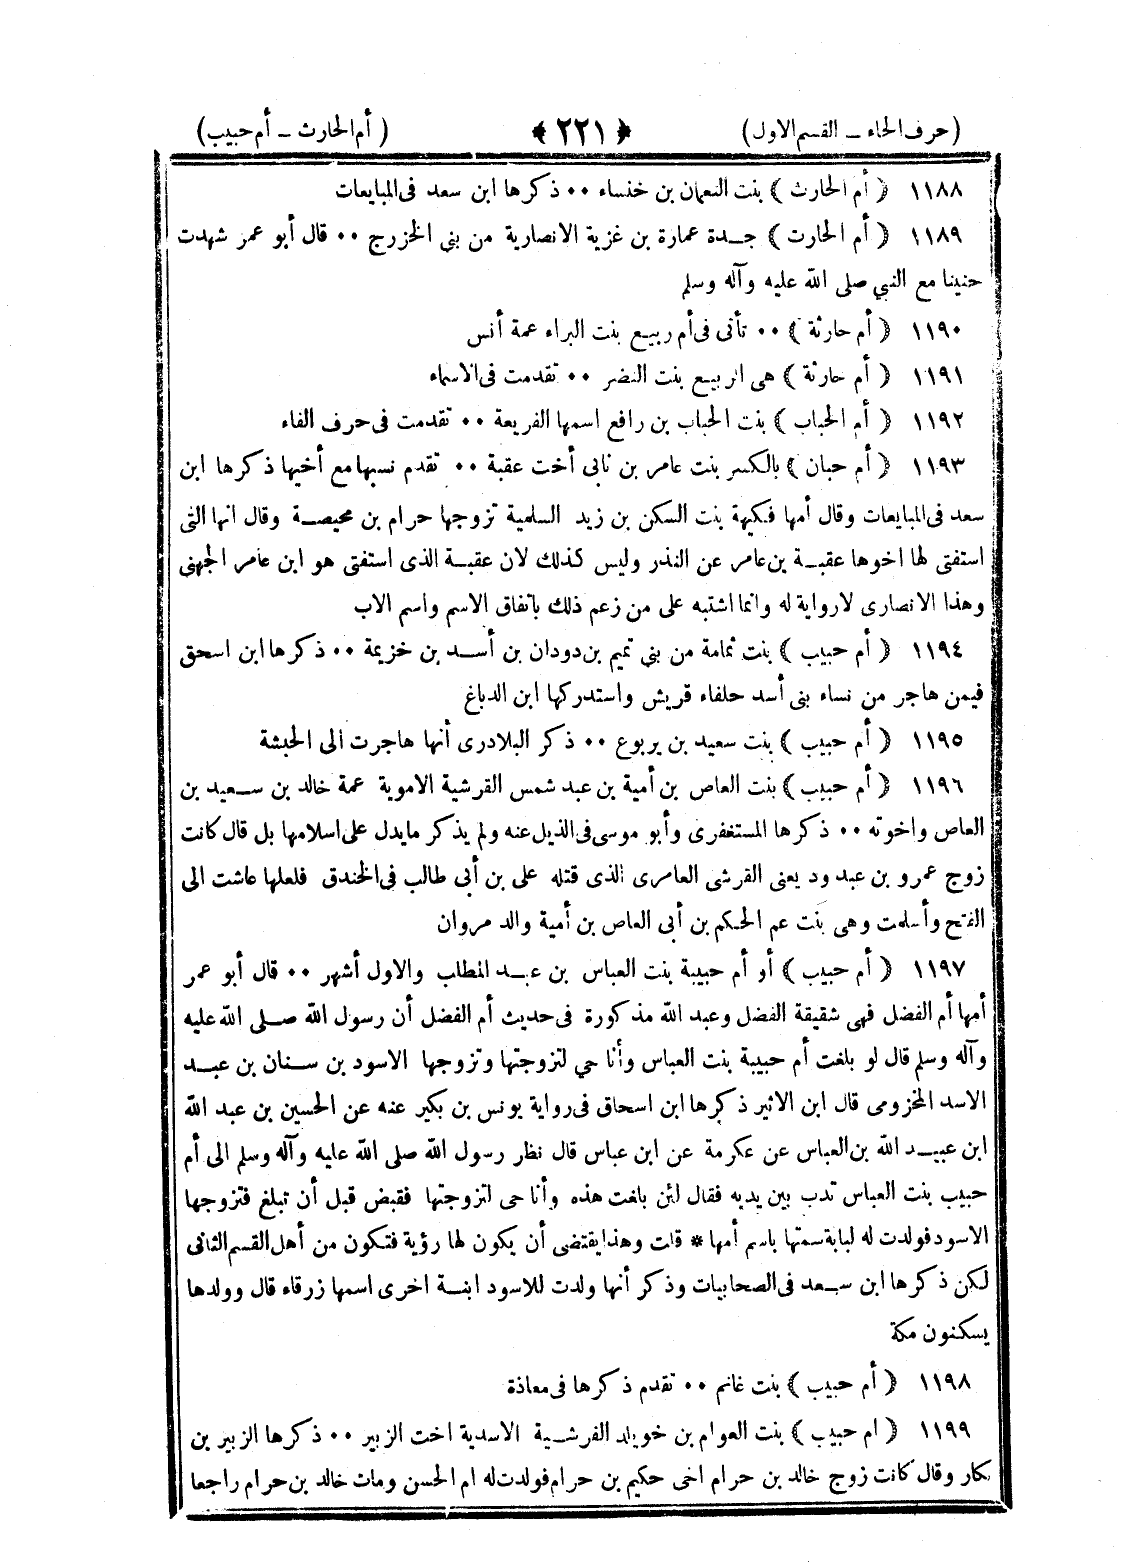 (حرف الحاء – القسم الاول) ﴿ ٢٢١ ﴾ ( أم الحارث – أم حبيب)
١١٨٨ ﴿ أم الحارث ﴾ بنت النعمان بن خنساء ٠٠ ذكرها ابن سعد فى المبايعات
١١٨٩ ﴿ أم الحارث ﴾ جدة عمارة بن غزية الانصارية من بني الخزرج ٠٠ قال أبو عمر شهدت
حنينا مع النبي صلى الله عليه وآله وسلم
١١٩٠ ﴿ أم حارثة ﴾ ٠٠ تأتى فى أم ربيع بنت البراء عمة أنس
١١٩١ ﴿ أم حارثة ﴾ هى الربيع بنت النضر ٠٠ تقدمت فى الاسماء
١١٩٢ ﴿ أم الحباب ﴾ بنت الحباب بن رافع اسمها الفريعة ٠٠ تقدمت فى حرف الفاء
١١٩٣ ﴿ أم حبان ﴾ بالكسر بنت عامر بن نابى أخت عقبة ٠٠ تقدم نسبها مع أخيها ذكرها ابن
سعد فى المبايعات وقال أمها فكيهة بنت السكن بن زيد السلمية تزوجها حرام بن محيصة وقال انها التى
استفتى لها اخوها عقبة بن عامر عن النذر وليس كذلك لان عقبة الذى استفتى هو ابن عامر الجهنى
وهذا الانصارى لا رواية له وانما اشتبه على من زعم ذلك باتفاق الاسم واسم الاب
١١٩٤ ﴿ أم حبيب ﴾ بنت ثمامة من بني تميم بن دودان بن أسد بن خزيمة ٠٠ ذكرها ابن اسحق
فيمن هاجر من نساء بنى أسد حلفاء قريش واستدركها ابن الدباغ
١١٩٥ ﴿ أم حبيب ﴾ بنت سعيد بن يربوع ٠٠ ذكر البلادرى أنها هاجرت الى الحبشة
١١٩٦ ﴿ أم حبيب ﴾ بنت العاص بن أمية بن عبد شمس القرشية الاموية عمة خالد بن سعيد بن
العاص واخوته ٠٠ ذكرها المستغفرى وأبو موسى فى الذيل عنه ولم يذكر مايدل على اسلامها بل قال كانت
زوج عمرو بن عبد ود يعنى القرشى العامرى الذى قتله على بن أبى طالب فى الخندق فلعلها عاشت الى
الفتح وأسلمت وهى بنت عم الحكم بن أبى العاص بن أمية والد مروان
١١٩٧ ﴿ أم حبيب ﴾ أو أم حبيبة بنت العباس بن عبد المطلب والاول أشهر ٠٠ قال أبو عمر
أمها أم الفضل فهى شقيقة الفضل وعبد الله مذكورة فى حديث أم الفضل أن رسول الله صلى الله عليه
وآله وسلم قال لو بلغت أم حبيبة بنت العباس وأنا حي لتزوجتها وتزوجها الاسود بن سنان بن عبد
الاسد المخزومى قال ابن الاثير ذكرها ابن اسحاق فى رواية يونس بن بكير عنه عن الحسين بن عبد الله
ابن عبيد الله بن العباس عن عكرمة عن ابن عباس قال نظر رسول الله صلى الله عليه وآله وسلم الى أم
حبيب بنت العباس تدب بين يديه فقال لئن بلغت هذه وأنا حى لتزوجتها فقبض قبل أن تبلغ فتزوجها
الاسود فولدت له لبابة سمتها باسم أمها * قلت وهذا يقتضى أن يكون لها رؤية فتكون من أهل القسم الثانى
لكن ذكرها ابن سعد فى الصحابيات وذكر أنها ولدت للاسود ابنة اخرى اسمها زرقاء قال وولدها
يسكنون مكة
١١٩٨ ﴿ أم حبيب ﴾ بنت غانم ٠٠ تقدم ذكرها فى معاذة
١١٩٩ ﴿ ام حبيب ﴾ بنت العوام بن خويلد القرشية الاسدية اخت الزبير ٠٠ ذكرها الزبير بن
بكار وقال كانت زوج خالد بن حرام اخى حكيم بن حرام فولدت له ام الحسن ومات خالد بن حرام راجعا